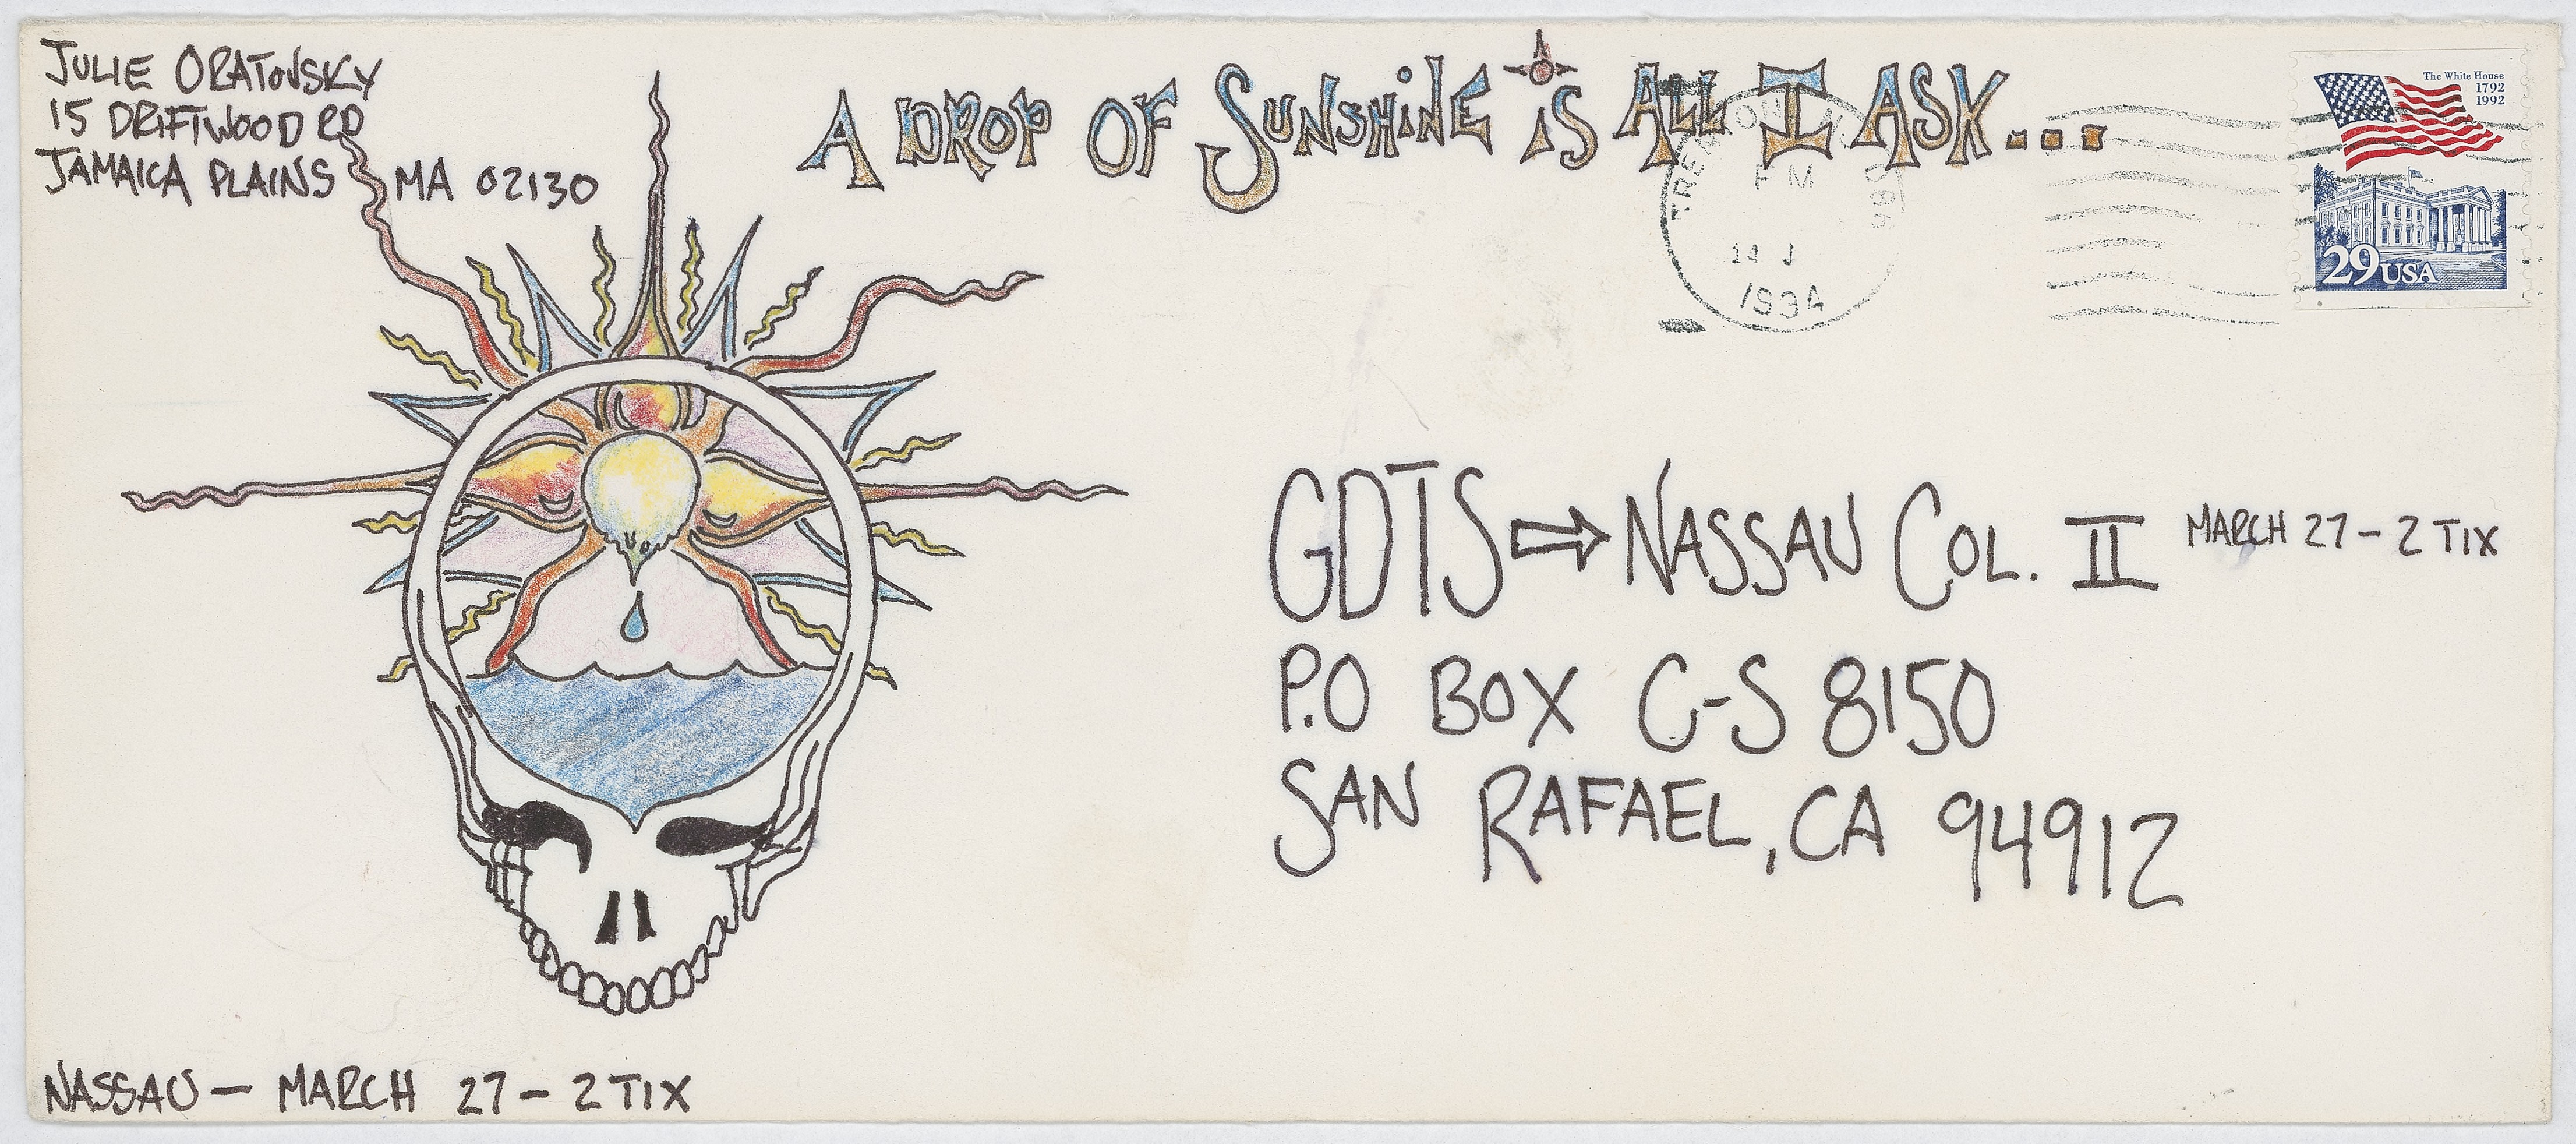 JULIE ORATOVSKY
15 DRIFTWOOD RD
JAMAICA PLAINS MA 02130
A DROP OF SUNSHINE IS ALL I ASK...
The White House
1792
1992
29 USA
PM
1994
GDTS ⇨ NASSAU COL. II MARCH 27 - 2 TIX
P.O BOX C-S 8150
SAN RAFAEL, CA 94912
NASSAU — MARCH 27 - 2 TIX